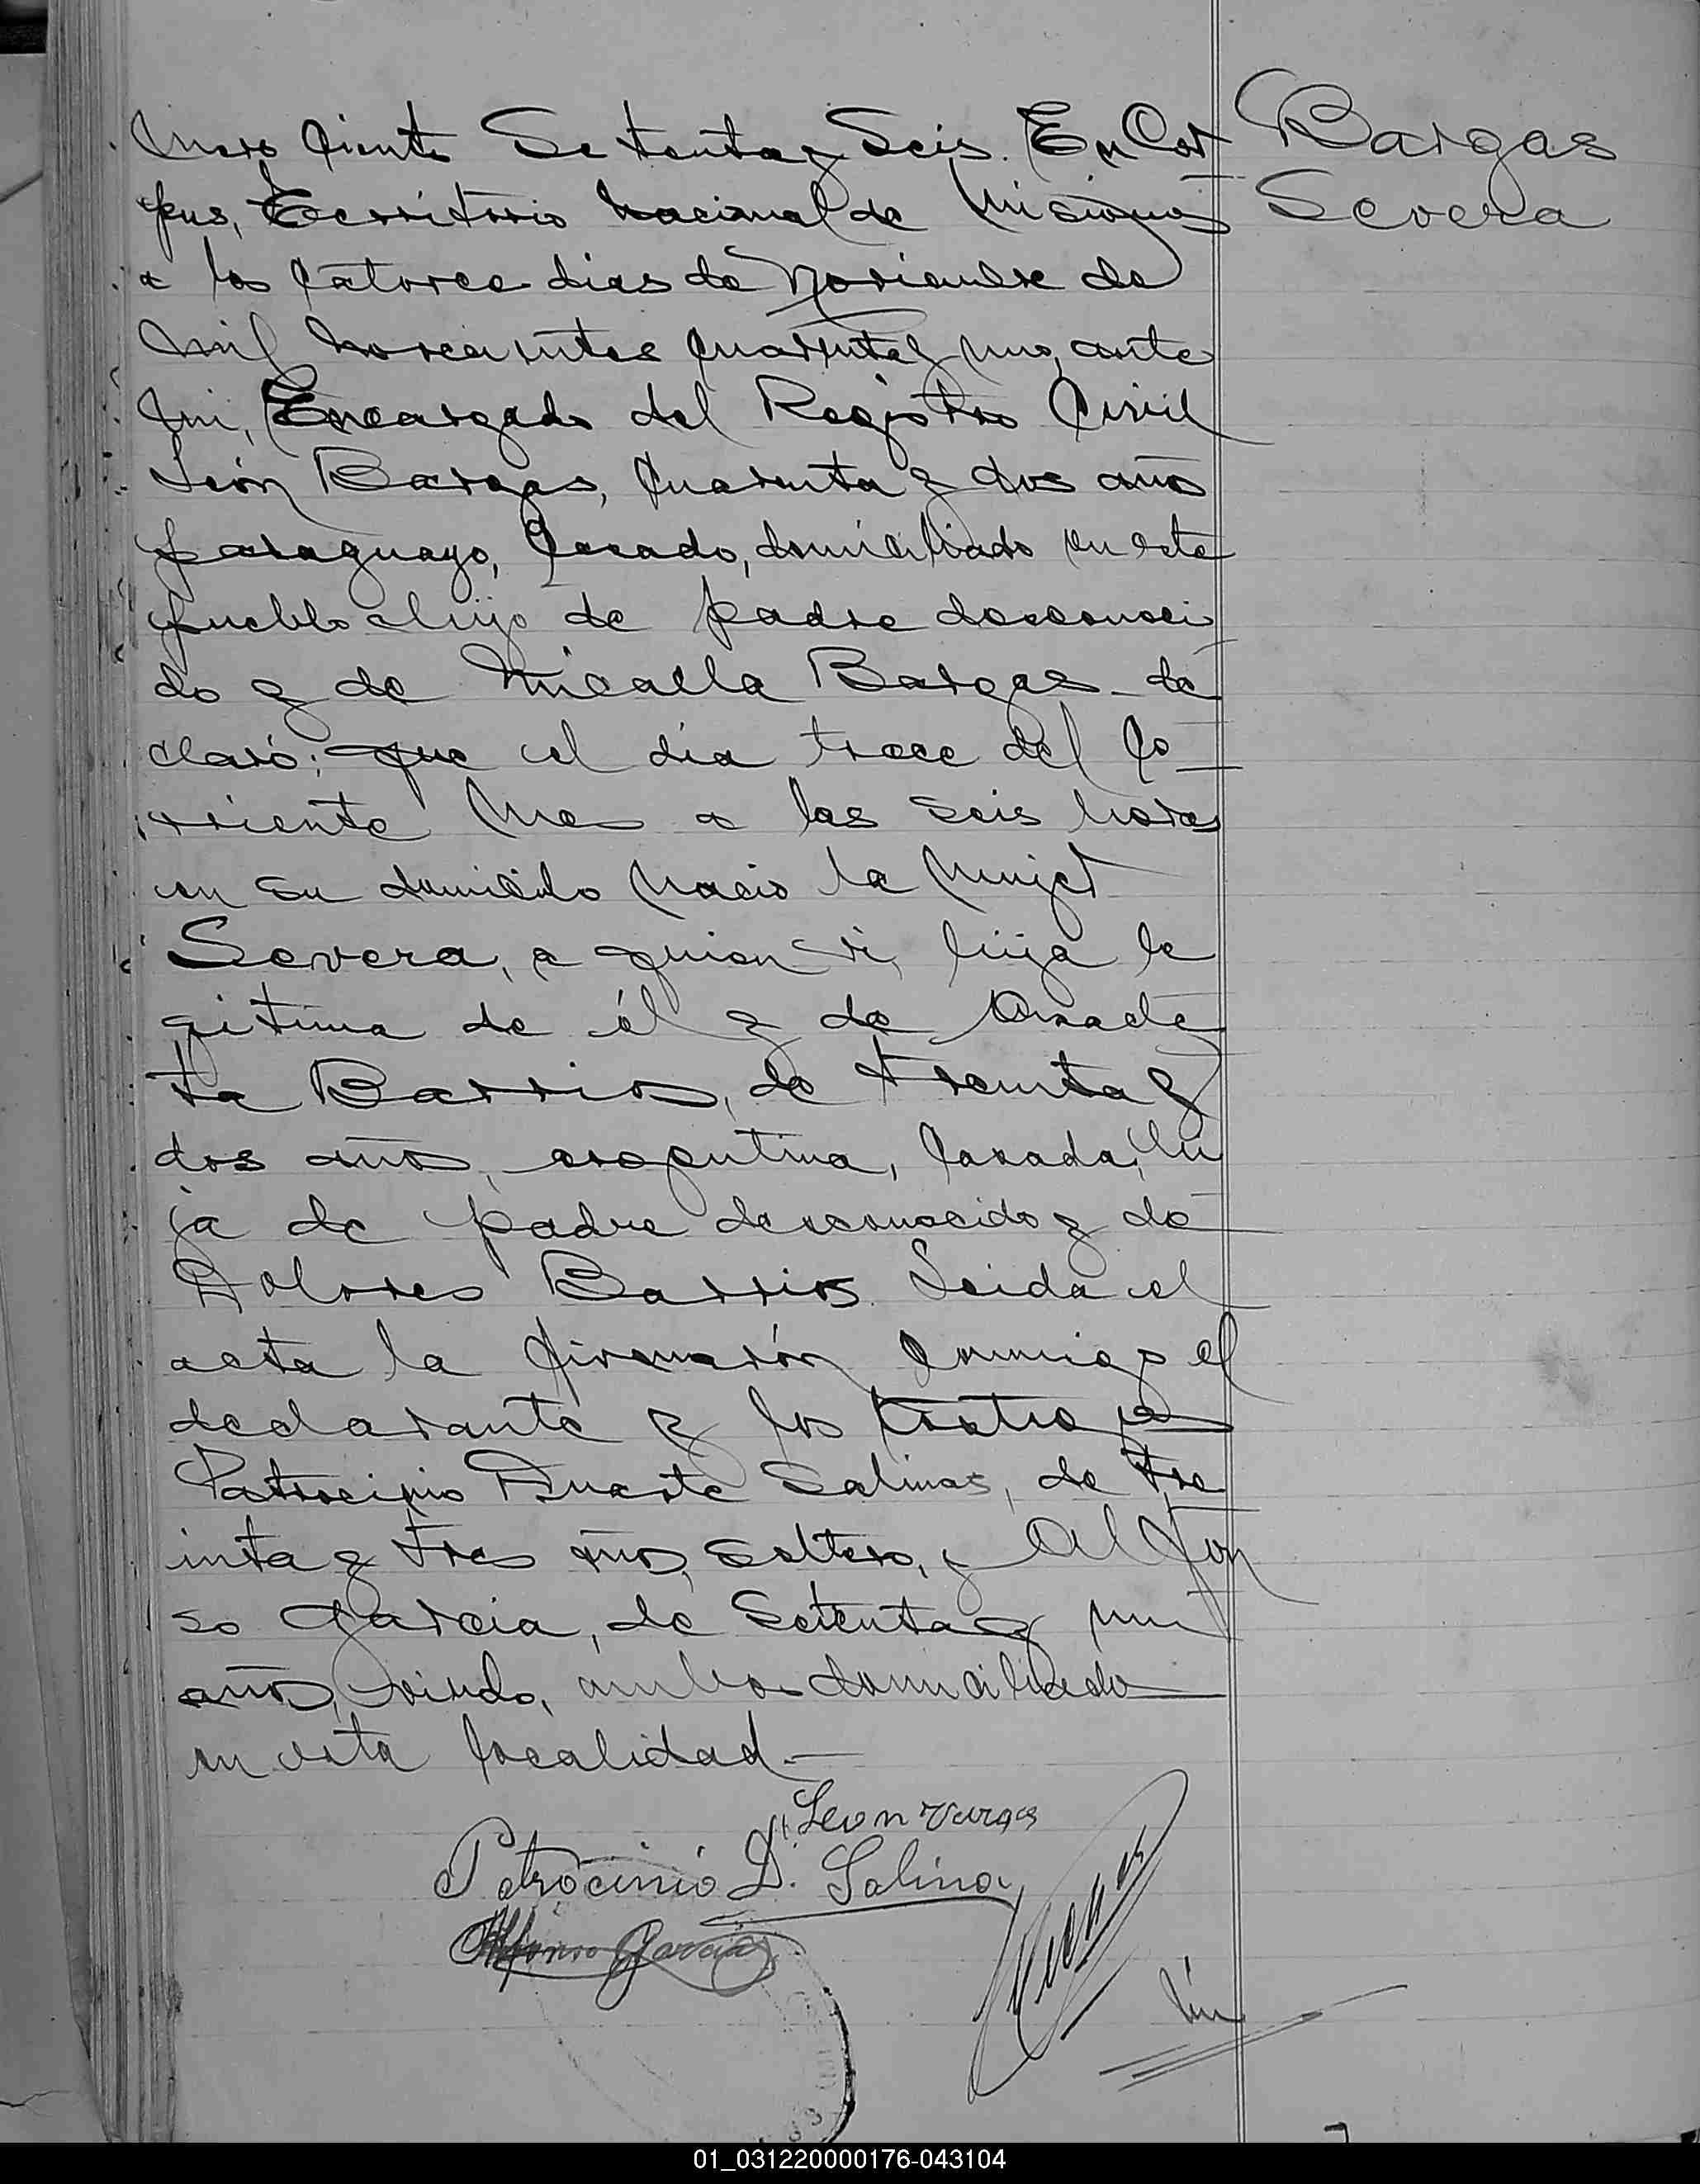 mero Ciento Setenta y Seis. En Cor
pus, Territorio Nacional de Misiones
a los Catorce dias de Noviembre de
mil novecientos Cuarenta y uno, ante
mi, Encargado del Registro Civil
León Bargas, Cuarenta y dos años
paraguayo, Casado, domiciliado en este
pueblo hijo de padre desconoci
do y de Micaella Bargas de
claró; que el día trece del Co
rriente mes a las seis horas
en su domicilio nacio la mujer
Severa, a quien vi, hija le
gitima de él y de Anacle
ta Barrios, de treinta y
dos años, argentina, Casada, hi
ja de padre desconocido y de
Dolores Barrios. Leida el
acta la firmarón Conmigo el
declarante y los testigos
Patrocinio Duarte Salinas, de tre
inta y tres años, soltero, y Alfon
so Garcia, de Setenta y un
años, viudo, ambos domiciliados
en esta localidad.—
Bargas
Severa
Leon Vargas
Patrocinio D. Salinas
Alfonso Garcia
01_031220000176-043104